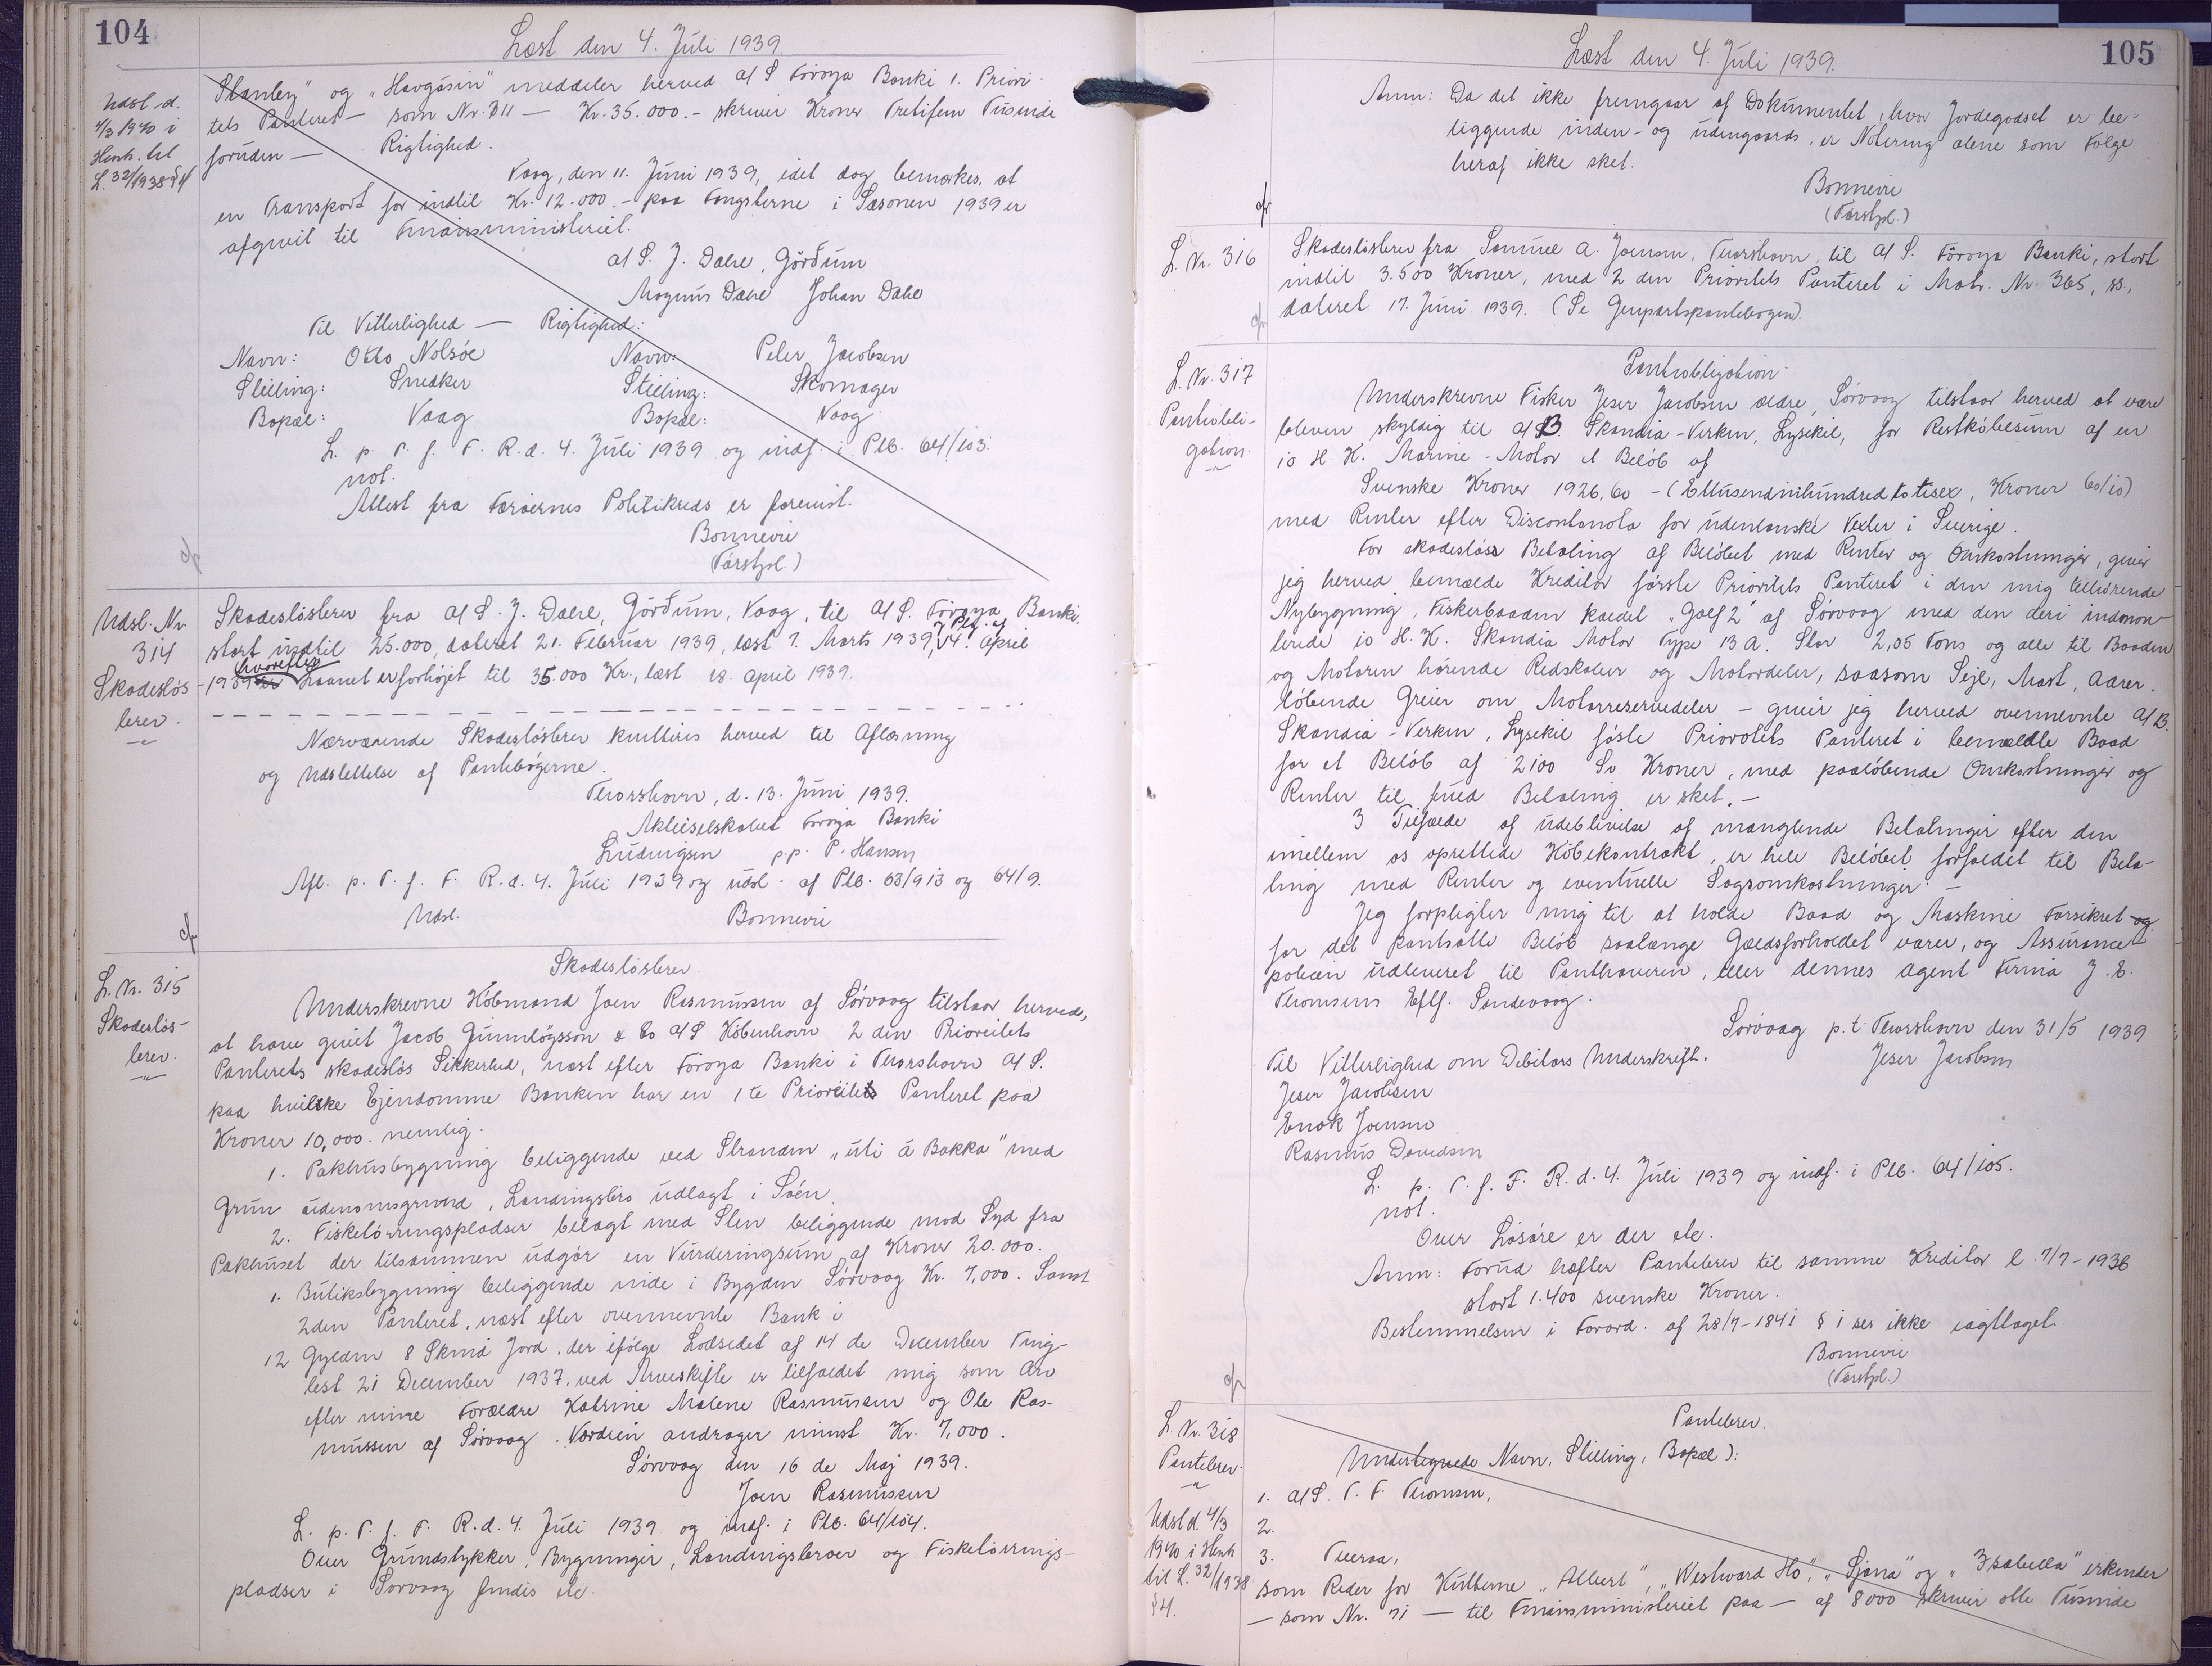 104
Læst den 4. Juli 1939.
Udsl. d.
4/3 1940 i
Henh. til
L. 32/1938 § 4
Stanley" og „Havgásin" meddeler herved A/S Föroya Banki 1. Priori-
tets Panteret — som Nr. 311 — Kr. 35.000.- skriver Kroner Tretifem Tusinde
foruden — Rigtighed.
Vaag, den 11. Juni 1939, idet dog bemærkes, at
en Transport for indtil Kr. 12.000.- paa Fangsterne i Sæsonen 1939 er
afgivet til Finansministeriet.
A/S. J. Dahl, Görðum
Magnus Dahl Johan Dahl
Til Vitterlighed — Rigtighed:
Navn: Otto Nolsöe Navn: Peter Jacobsen
Stilling: Snedker Stilling: Skomager
Bopæl: Vaag Bopæl: Vaag
L. p. T. f. F. R. d. 4. Juli 1939 og indf. i Ptb. 64/103.
not.
Attest fra Færøernes Politikreds er forevist.
Bonnevie
(Førstpl.)
Udsl. Nr.
314
Skadeslös-
brev.
Skadeslösbrev fra A/S. J. Dahl, Görðum, Vaag, til A/S. Föroya Banki,
stort indtil 25.000, dateret 21. Februar 1939, læst 7. Marts 1939, j Ptg. af 14. April
1939 hvorefter Laanet er forhöjet til 35.000 Kr., læst 18. April 1939.
Nærværende Skadeslösbrev kvitteres herved til Aflæsning
og Udslettelse af Pantebøgerne.
Thorshavn, d. 13. Juni 1939.
Aktieselskabet Föroya Banki
Ludvigsen p.p. P. Hansen
Afl. p. T. f. F. R. d. 4. Juli 1939 og udsl. af Ptb. 63/913 og 64/9.
Udsl. Bonnevie
L. Nr. 315
Skadeslös-
brev.
Skadeslösbrev.
Underskrevne Köbmand Joen Rasmussen af Sörvaag tilstaar herved,
at have givet Jacob Gunnlögsson & Co A/S Köbenhavn 2 den Prioreitets
Panterets skadeslös Sikkerhed, næst efter Föroya Banki i Thorshavn A/S.
paa hvilske Ejendomme Banken har en 1 te Prioreitets Panteret paa
Kroner 10,000. nemlig.
1. Pakhusbygning beliggende ved Stranden „úti á Bakka" med
Grun uidenomsgrund, Landingsbro udlagt i Söen
2. Fisketörringspladser belagt med Sten beliggende mod Syd fra
Pakhuset der tilsammen udgör en Vurderingsum af Kroner 20.000.
1. Butiksbygning beliggende inde i Bygden Sörvaag Kr. 7,000. Samt
2den Panteret, næst efter ovennevnte Bank i
12 Gylden 8 Skind Jord, der ifölge Lodsedel af 14 de December Ting-
lest 21 December 1937, ved Arveskifte er tilfaldet mig som Arv
efter mine Forældre Katrine Malene Rasmussen og Ole Ras-
mussen af Sørvaag. Værdien andrager minst Kr. 7,000.
Sörvaag den 16 de Maj 1939.
Joen Rasmussen
L. p. T. f. F. R. d. 4. Juli 1939 og indf. i Ptb. 64/104.
Over Grundstykker, Bygninger, Landingsbroer og Fisketörrings-
pladser i Sörvaag findes ele.
105
Læst den 4. Juli 1939.
Anm: Da det ikke fremgaar af Dokumentet, hvor Jordegodset er be-
liggende inden- og udengaards, er Notering alene som Følge
heraf ikke sket.
Bonnevie
(Førstpl.)
L. Nr. 316
Skadeslösbrev fra Samuel A. Joensen, Thorshavn, til A/S. Föroya Banki, stort
indtil 3.500 Kroner, med 2 den Prioritets Panteret i Matr. Nr. 365, ss,
dateret 17. Juni 1939. (Se Genpartspantebogen)
L. Nr. 317
Panteobli-
gation.
Pantobligation.
Underskrevne Fisker Jeser Jacobsen ældre, Sörvaag tilstaar herved at være
bleven skyldig til A/B. Skandia-Verken, Lysekil, for Restköbesum af en
10 H. K. Marine-Motor et Belöb af
Svenske Kroner 1926,60 - (Ettusendnihundred to tisex, Kroner 60/10)
med Renter efter Discontonota for udenlanske Vexler i Sverige.
For skadeslöss Betaling af Belöbet med Renter og Omkostninger, giver
jeg herved bemældte Kreditor förste Prioritets Panteret i den mig tilhörende
Nybygning, Fiskerbaaden kaldet „Golf 2" af Sörvaag med den deri indmon-
terede 10 H. K. Skandia Motor Type 13 A. Stor 2,05 Tons og alle til Baaden
og Motoren hörende Redskaber og Motordeler, saasom Sejl, Mast, Aarer.
löbende Greier om Motorreservedeler - giver jeg herved ovennevnte A/B.
Skandia-Verken, Lysekil föste Priorotets Panteret i bemeldte Baad
for et Belöb af 2100 Sv Kroner, med paalöbende Omkostninger og
Renter til fuld Betaling er sket. -
I Tilfælde af udeblivelse af manglende Betalinger efter den
imellem os oprettede Köbekontrakt, er hele Belöbet forfaldet til Beta-
ling med Renter og eventuelle Sagsomkostninger -
Jeg forpligter mig til at holde Baad og Maskine Forsikret og
for det pantsatte Belöb saalænge Gældsforholdet varer, og Assurance
policen udleveret til Panthaveren, eller dennes Agent Firma J. E.
Thomsens Eftf. Sandevaag.
Sörvaag p.t. Thorshavn den 31/5 1939
Til Vitterlighed om Debitors Underskrift. Jeser Jacobsen
Jeser Jacobsen
Enok Joensen
Rasmus Davidsen
L. p. T. f. F. R. d. 4. Juli 1939 og indf. i Ptb. 64/105.
not.
Over Lösöre er der ele.
Anm: Forud hæfter Pantebrev til samme Kreditor l. 7/7-1936
stort 1.400 svenske Kroner.
Bestemmelsen i Forord. af 28/7-1841 § 1 ses ikke iagttaget.
Bonnevie
(Førstpl.)
L. Nr. 318
Pantebrev.
Udsl d. 4/3
1940 i Henh
til L. 32/1938
§ 4.
Pantebrev.
Undertegnede Navn, Stilling, Bopæl):
1. A/S. T. F. Thomsen,
2.
3. Tveraa,
som Reder for Kutterne „Albert", „Westward Ho", „Sjana" og „Isabella" erkender
— som Nr. 71 — til Finansministeriet paa — af 8000 skriver otte Tusinde